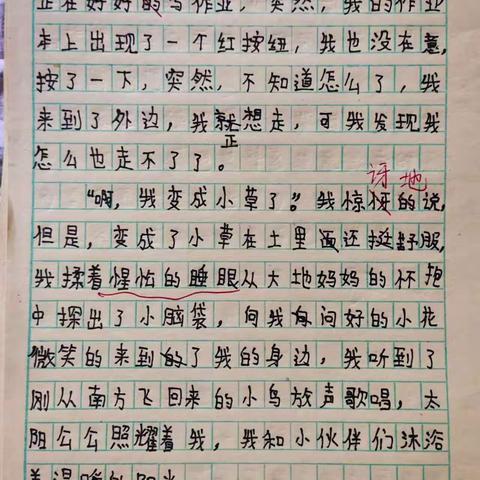 正在好好的写作业，突然，我的作业
本上出现了一个红按纽，我也没在意，
按了一下，突然，不知道怎么了，我
来到了外边，我就想走，可我发现我
正
怎么也走不了了。
讶地
“啊，我变成小草了”。我惊伢的说，
但是，变成了小草在土里面还挺舒服，
我揉着惺忪的睡眼从大地妈妈的怀抱
中探出了小脑袋，向我问好的小花
微笑的来到了我的身边，我听到了
刚从南方飞回来的小鸟放声歌唱，太
阳公公照耀着我，我和小伙伴们沐浴
着温暖的阳光